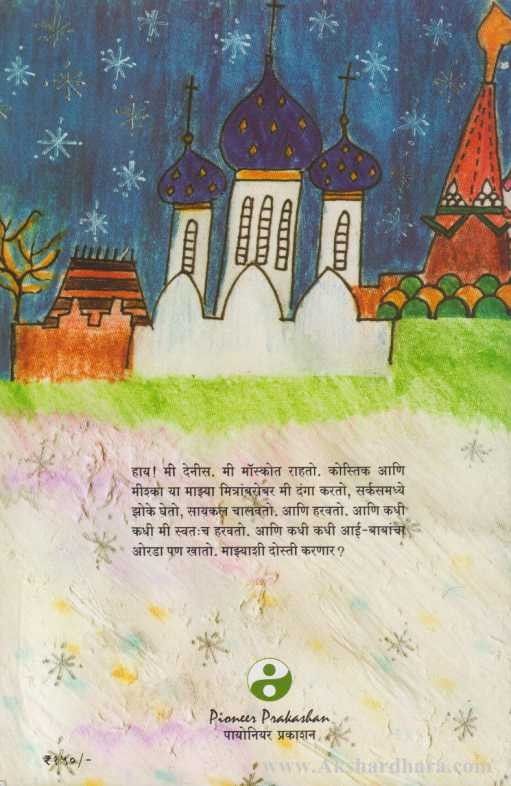 हाय! मी देनीस. मी मॉस्कोत राहतो. कोस्तिक आणि
मीश्का या माझ्या मित्रांबरोबर मी दंगा करतो, सर्कसमध्ये
झोके घेतो, सायकल चालवतो. आणि हरवतो. आणि कधी
कधी मी स्वतःच हरवतो. आणि कधी कधी आई-बाबांचा
ओरडा पण खातो. माझ्याशी दोस्ती करणार ?
Pioneer Prakashan
पायोनियर प्रकाशन
₹१५०/-
www.Akshardhara.com